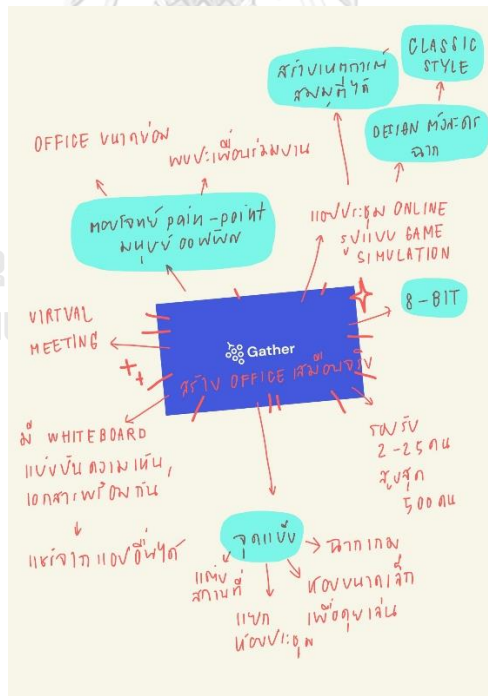 สร้างเหตุการณ์
สมมุติได้
CLASSIC
STYLE
OFFICE ขนาดย่อม
พบปะเพื่อนร่วมงาน
DESIGN ตัวละคร
ฉาก
ตอบโจทย์ pain-point
มนุษย์ออฟฟิศ
แอปประชุม ONLINE
รูปแบบ GAME
SIMULATION
VIRTUAL
MEETING
8-BIT
Gather
สร้าง OFFICE เสมือนจริง
มี WHITEBOARD
แบ่งปันความเห็น,
เอกสารพร้อมกัน
แชร์จากแอปอื่นได้
รองรับ
2-25 คน
สูงสุด
500 คน
จุดแข็ง
ฉากเกม
แต่ง
สถานที่
แยก
ห้องประชุม
ห้องขนาดเล็ก
เพื่อคุยเล่น